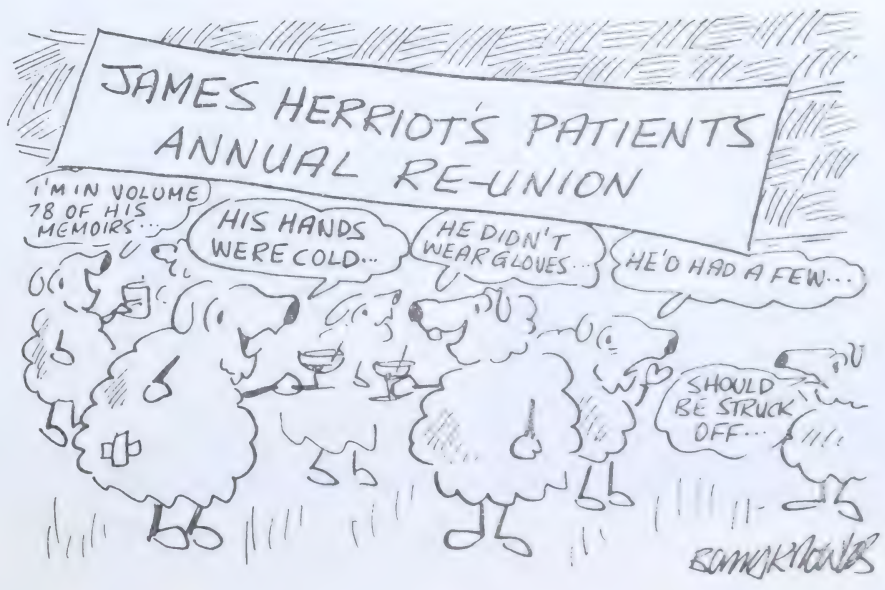 JAMES HERRIOT'S PATIENTS
ANNUAL RE-UNION
I'M IN VOLUME
78 OF HIS
MEMOIRS...
HIS HANDS
WERE COLD...
HE DIDN'T
WEAR GLOVES...
HE'D HAD A FEW...
SHOULD
BE STRUCK
OFF...